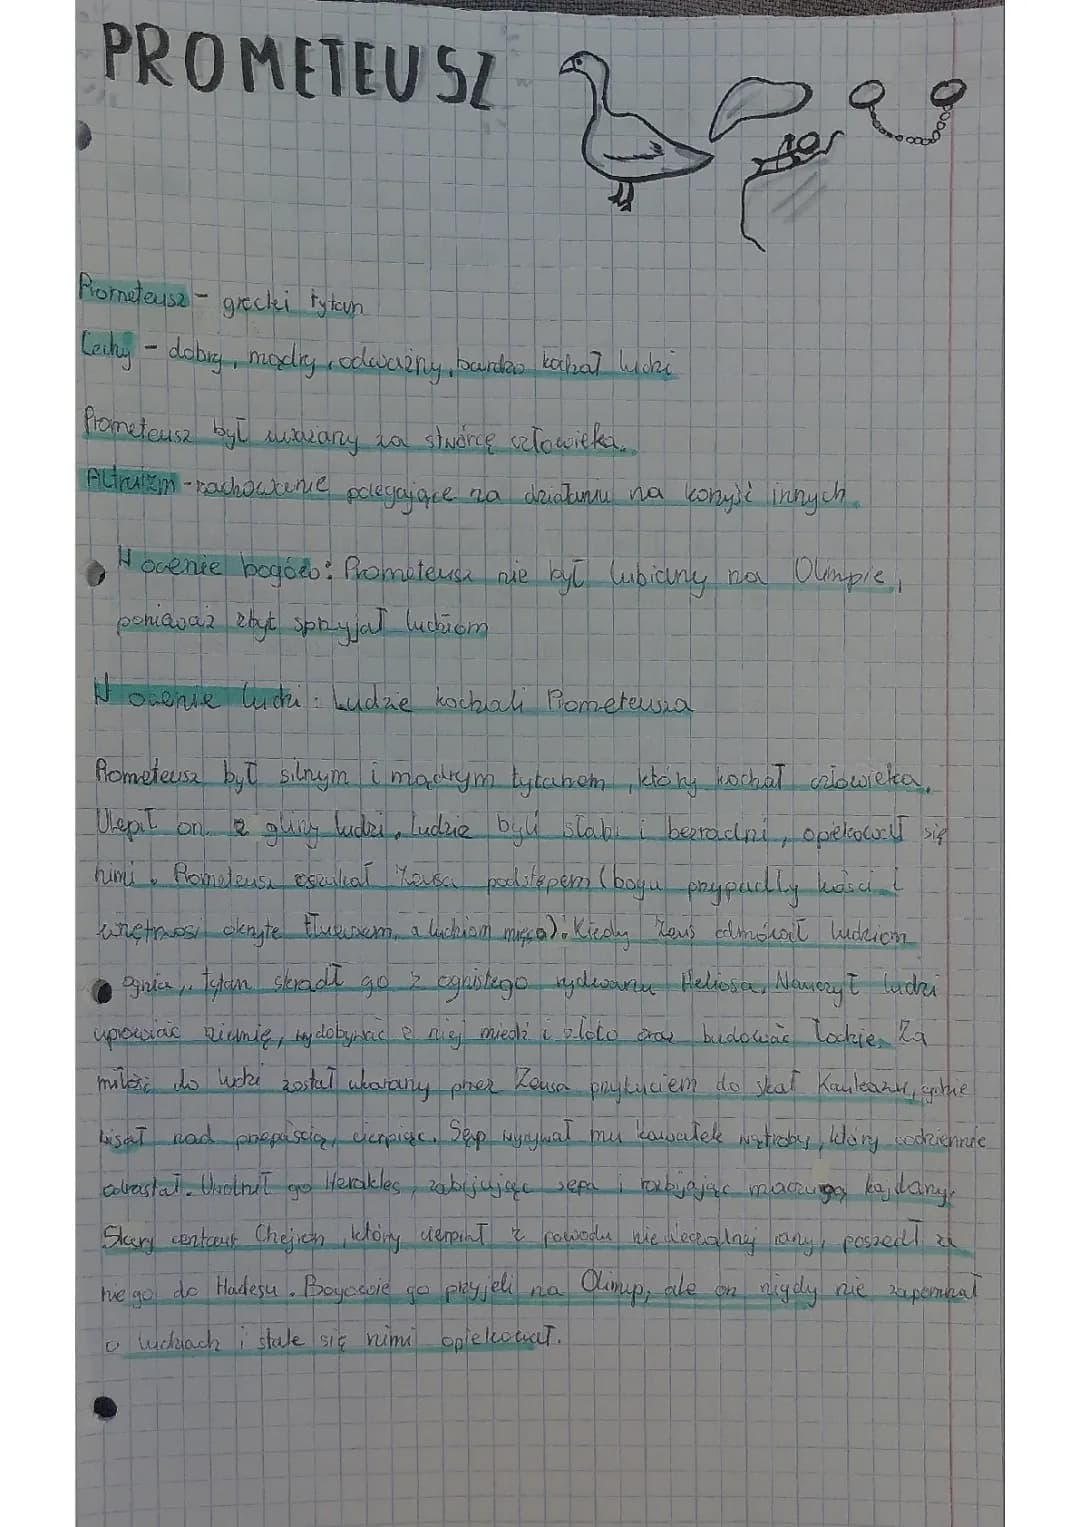 PROMETEUSZ
Prometeusz - grecki tytan
Cechy - dobry, mądry, odważny, bardzo kochał ludzi
Prometeusz był uważany za stwórcę człowieka.
Altruizm - zachowanie polegające na działaniu na korzyść innych.
W ocenie bogów: Prometeusz nie był lubiany na Olimpie,
ponieważ zbyt sprzyjał ludziom
W ocenie ludzi: Ludzie kochali Prometeusza
Prometeusz był silnym i mądrym tytanem, który kochał człowieka.
Ulepił on z gliny ludzi. Ludzie byli słabi i bezradni, opiekował się
nimi. Prometeusz oszukał Zeusa podstępem (bogu przypadły kości i
wnętrzności okryte tłuszczem, a ludziom mięso). Kiedy Zeus odmówił ludziom
ognia, tytan skradł go z ognistego rydwanu Heliosa. Nauczył ludzi
uprawiać ziemię, wydobywać z niej miedź i złoto oraz budować łodzie. Za
miłość do ludzi został ukarany przez Zeusa przykuciem do skał Kaukazu, gdzie
wisał nad przepaścią, cierpiąc. Sęp wyrywał mu kawałek wątroby, który codziennie
odrastał. Uwolnił go Herakles, zabijając sępa i rozbijając maczugą kajdany.
Stary centaur Chejron, który cierpiał z powodu nieuleczalnej rany, poszedł za
niego do Hadesu. Bogowie go przyjęli na Olimp, ale on nigdy nie zapomniał
o ludziach i stale się nimi opiekował.